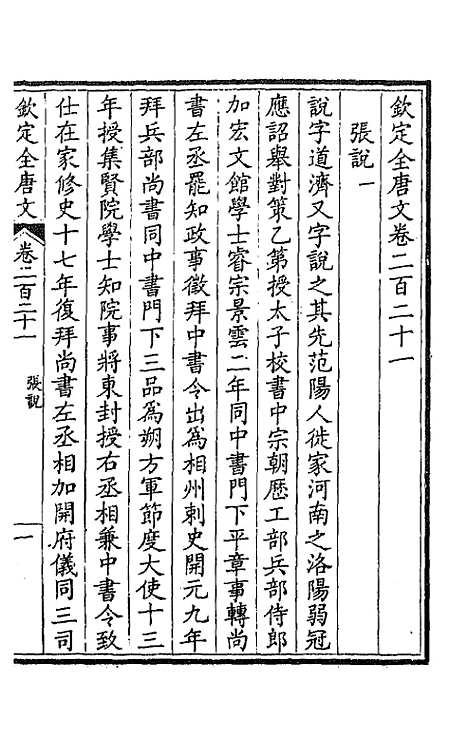 欽定全唐文卷二百二十一
張說一
說字道濟又字說之其先范陽人徙家河南之洛陽弱冠
應詔舉對策乙第授太子校書中宗朝歷工部兵部侍郎
加宏文館學士睿宗景雲二年同中書門下平章事轉尚
書左丞罷知政事徵拜中書令出為相州刺史開元九年
拜兵部尚書同中書門下三品為朔方軍節度大使十三
年授集賢院學士知院事將東封授右丞相兼中書令致
仕在家修史十七年復拜尚書左丞相加開府儀同三司
欽定全唐文
卷二百二十一
張說
一